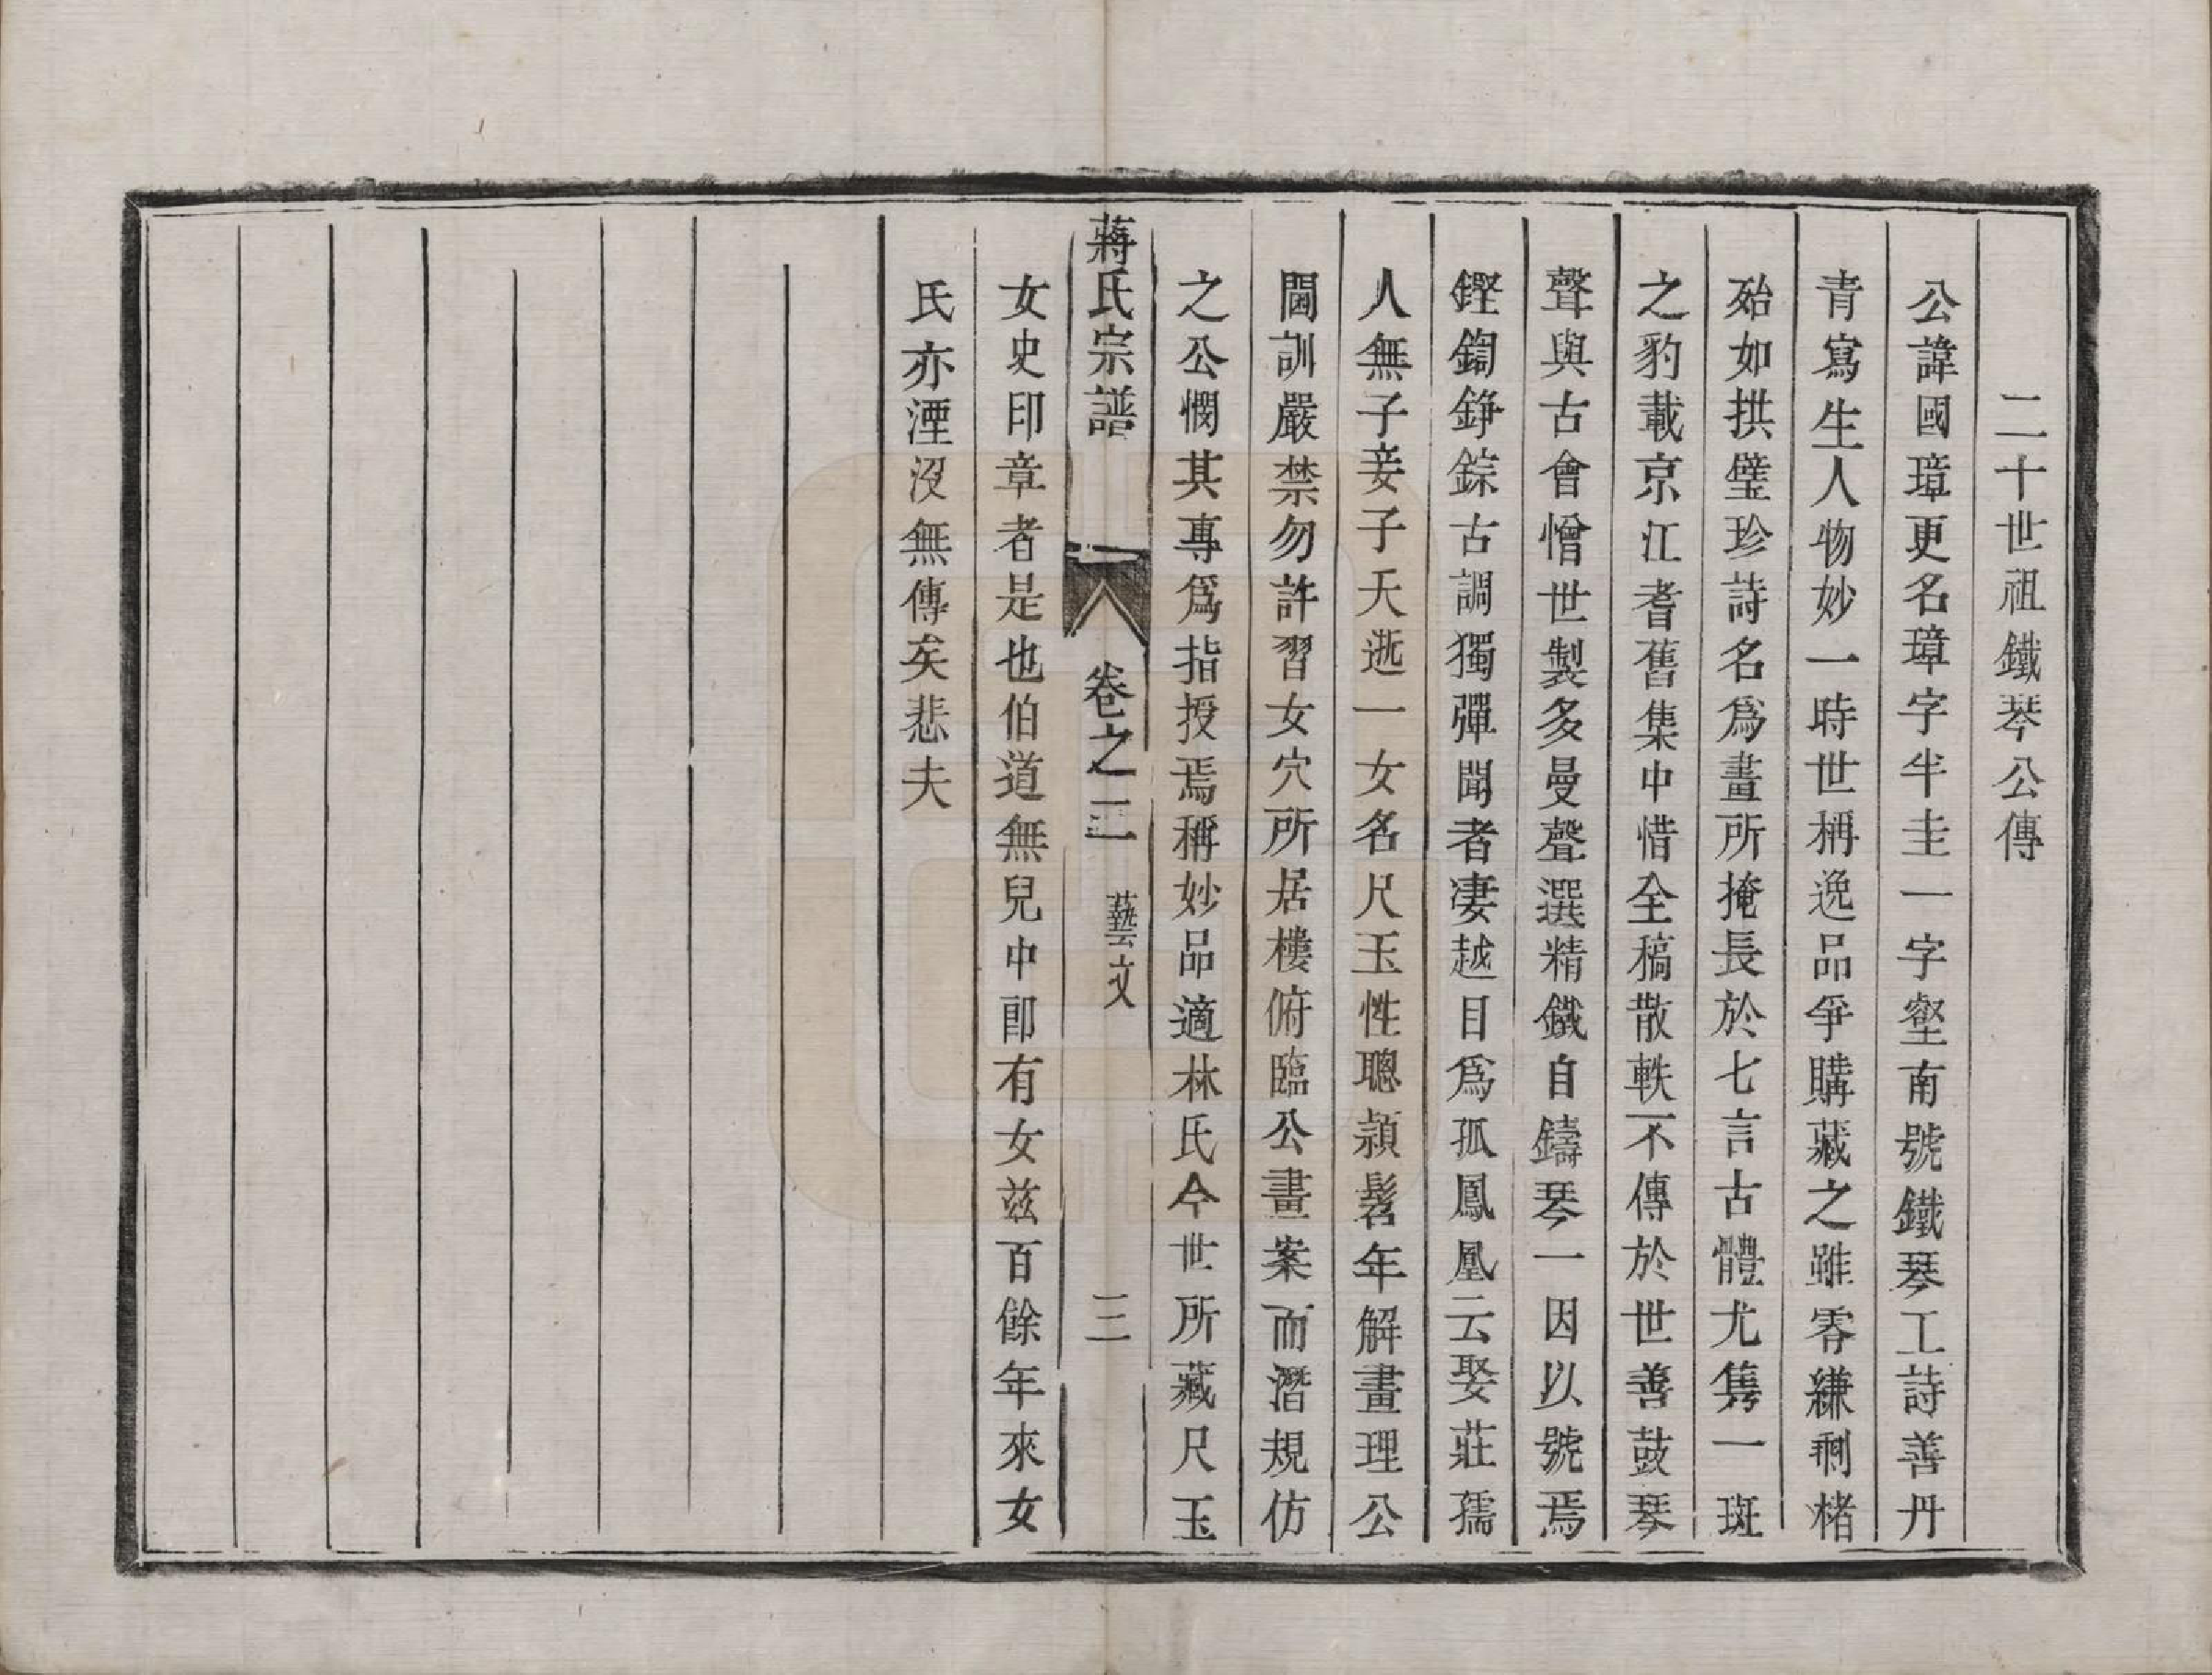 二十世祖鐵琴公傳
公諱國璋更名璋字半圭一字壑南號鐵琴工詩善丹
青寫生人物妙一時世稱逸品爭購藏之雖零縑剩楮
殆如拱璧珍詩名爲畫所掩長於七言古體尤雋一斑
之豹載京江耆舊集中惜全稿散軼不傳於世善鼓琴
聲與古會憎世製多曼聲選精鐵自鑄琴一因以號焉
鏗鍧錚錝古調獨彈聞者凄越目爲孤鳳凰云娶莊孺
人無子妾子夭逝一女名尺玉性聰潁髫年解畫理公
閫訓嚴禁勿許習女穴所居樓俯臨公畫案而潛規仿
之公憫其專爲指授焉稱妙品適林氏今世所藏尺玉
蔣氏宗譜 卷之二 藝文 三
女史印章者是也伯道無兒中郎有女兹百餘年來女
氏亦湮沒無傳矣悲夫